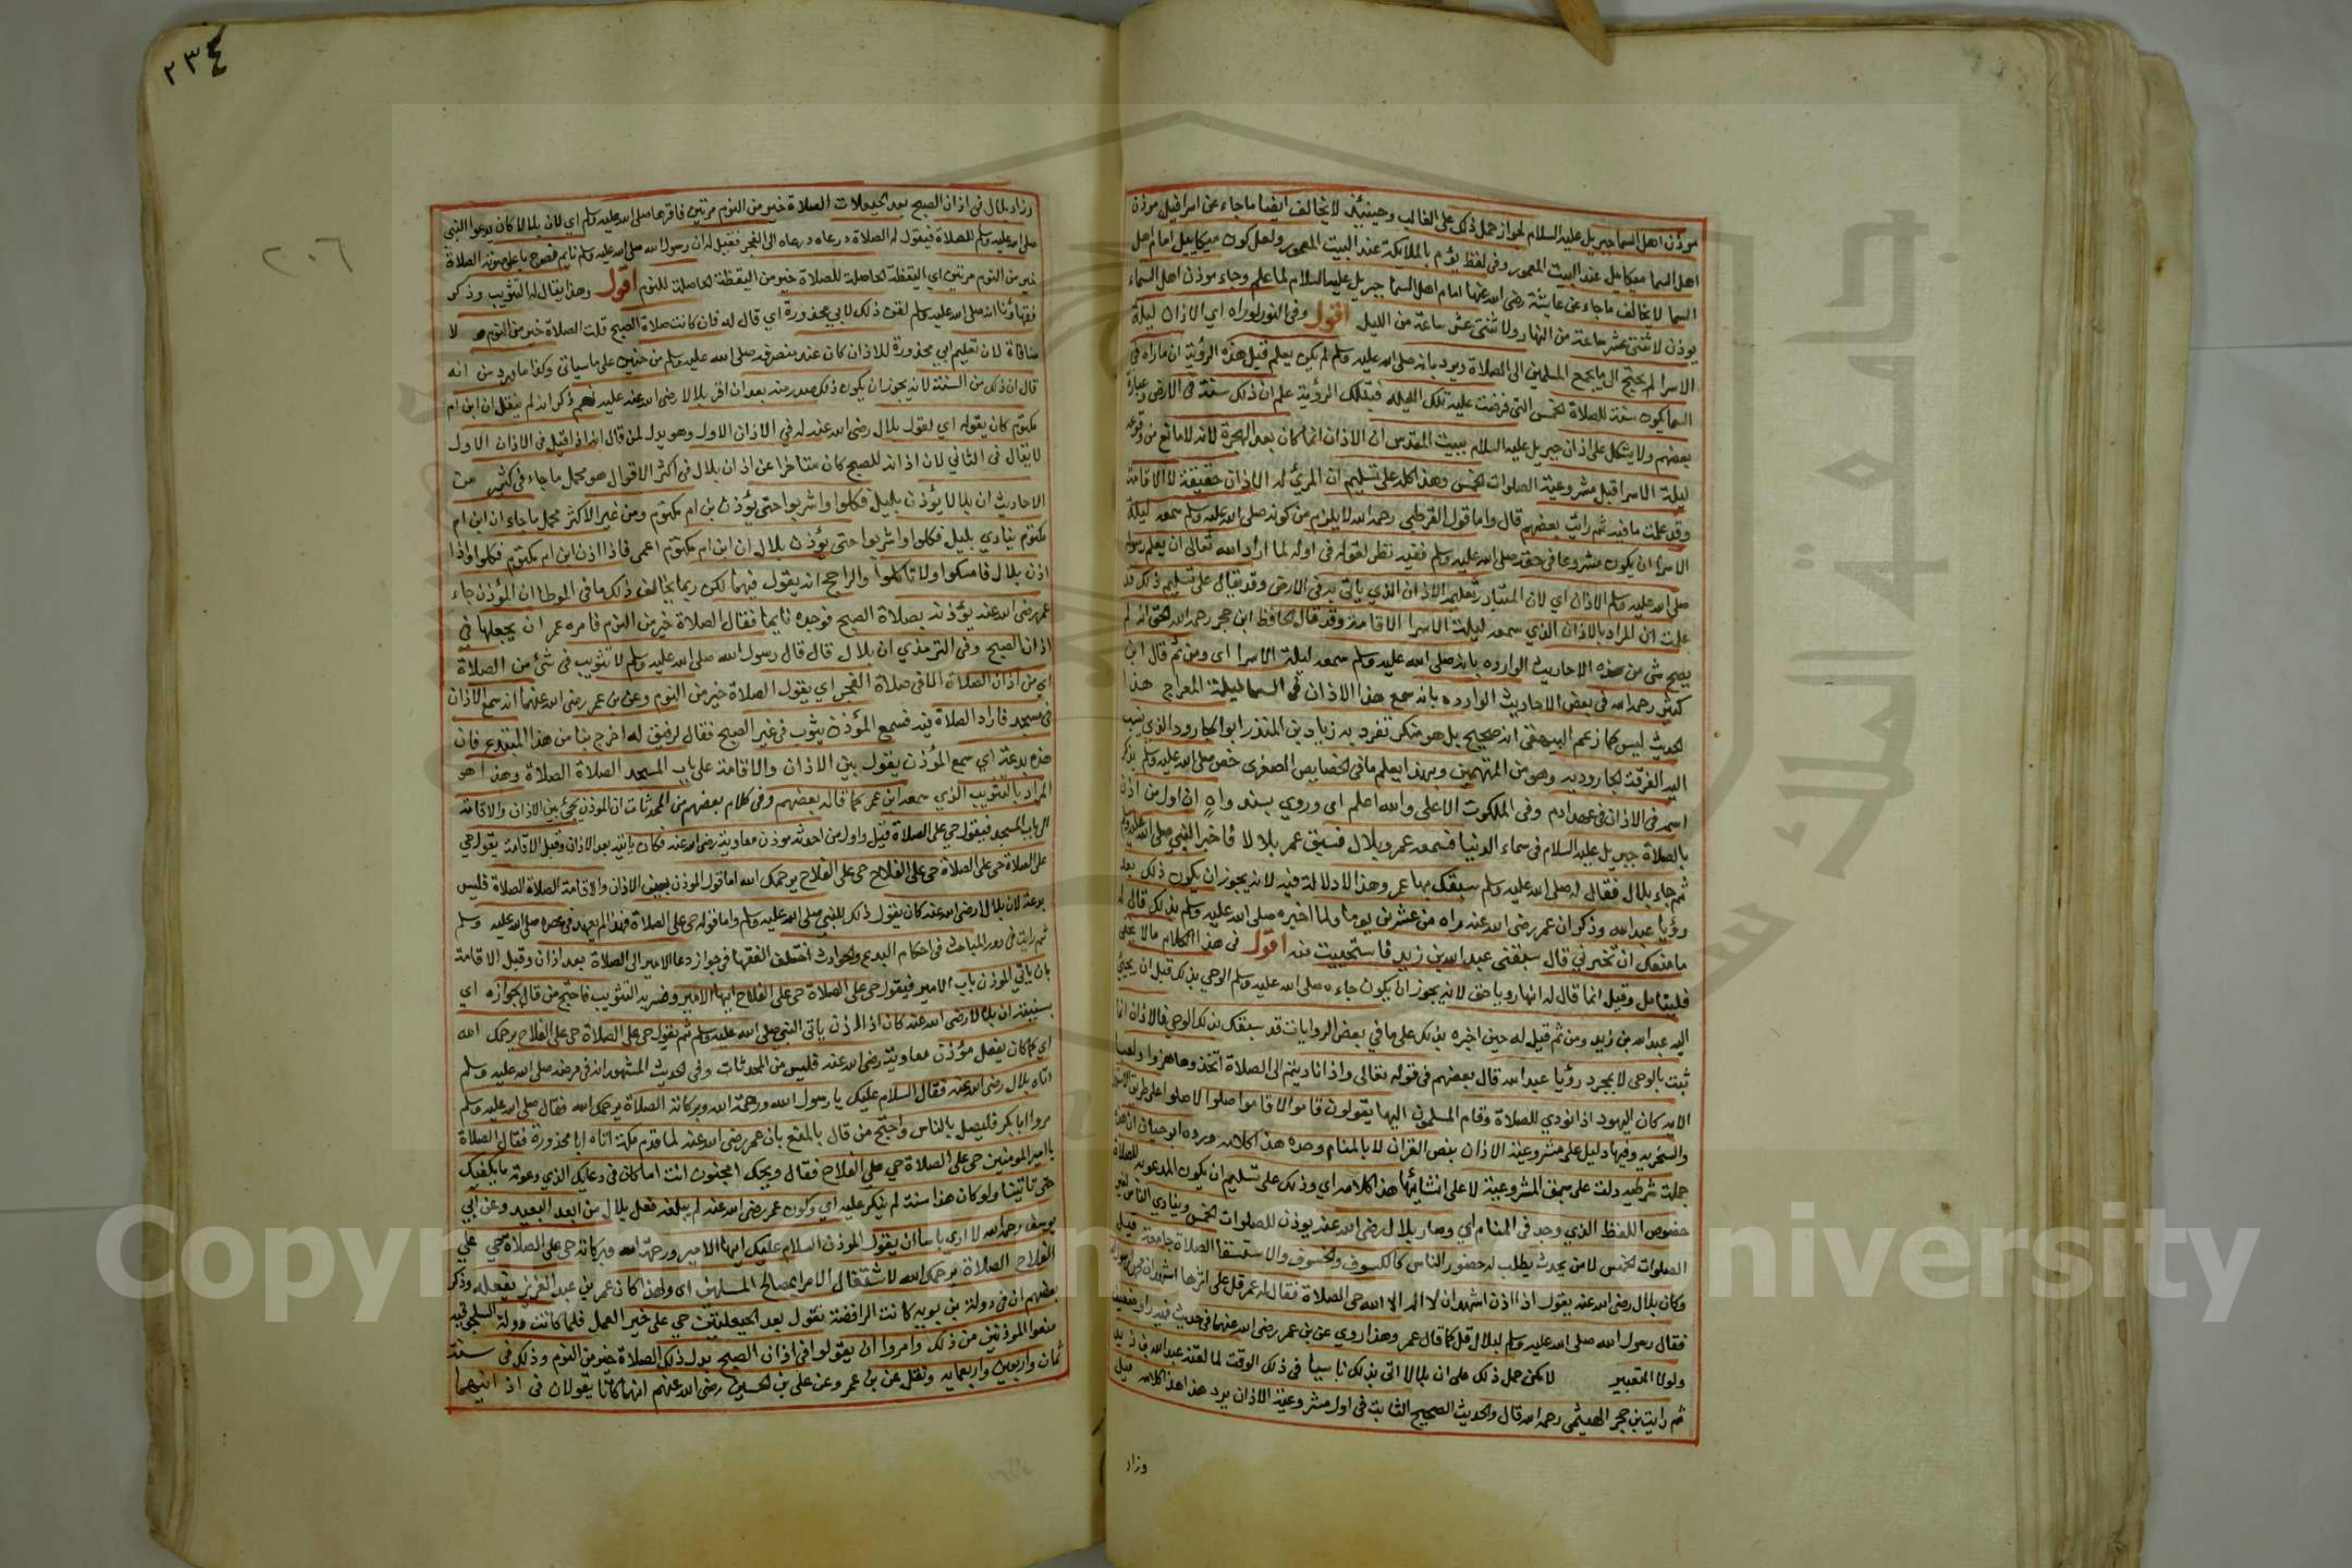 موذن اهل السما جبريل عليه السلام لجواز حمل ذلك على الغالب وحينئذ لا يخالف ايضا ماجاء عن اسرافيل موذن
اهل السما ميكاييل عند البيت المعمور وفى لفظ يؤم بالملايكة عند البيت المعمور ولعل كون ميكاييل امام اهل
السما لا يخالف ماجاء عن عايشة رضى الله عنها امام اهل السما جبريل عليه السلام لما علم وجاء موذن اهل السماء
يوذن لاثنتى عشر ساعة من النهار ولاثنتى عشر ساعة من الليل اقول وفى النور لو راه اى الاذان ليلة
الاسرا لم يحتج الى ما يجمع المسلمين الى الصلاة ويرد بانه صلى الله عليه وسلم لم يكن يعلم قبل هذه الرؤية ان ماراه فى
السما يكون سنة للصلاة الخمس التى فرضت عليه تلك الليلة فبتلك الرؤية علم ان ذلك سنة فى الارض وعبارة
بعضهم ولا يشكل على اذان جبريل عليه السلام ببيت المقدس ان الاذان انما كان بعد الهجرة لانه لا مانع من وقوعه
ليلة الاسرا قبل مشروعية الصلوات الخمس وهذا كله على تسليم ان المرئ له الاذان حقيقة لا الاقامة
وقد علمت مافيه ثم رايت بعضهم قال واما قول القرطبى رحمه الله لا يلزم من كونه صلى الله عليه وسلم سمعه ليلة
الاسرا ان يكون مشروعا فى حقه صلى الله عليه وسلم ففيه نظر لقوله فى اوله لما اراد الله تعالى ان يعلم رسوله
صلى الله عليه وسلم الاذان اي لان المتبادر تعليمه الاذان الذي ياتى به فى الارض وقد يقال على تسليم ذلك قد
علمت ان المراد بالاذان الذي سمعه ليلة الاسرا الاقامة وقد قال الحافظ ابن حجر رحمه الله الحق انه لم
يصح شى من هذه الاحاديث الوارده بانه صلى الله عليه وسلم سمعه ليلة الاسرا اى ومن ثم قال ابن
كثير رحمه الله فى بعض الاحاديث الوارده بانه سمع هذا الاذان فى السما ليلة المعراج هذا
الحديث ليس كما زعم البيهقى انه صحيح بل هو منكر تفرد به زياد بن المنذر ابو الجارود الذي ينسب
اليه الفرقة الجاروديه وهو من المتهمين وبهذا يعلم مافى الخصايص الصغرى خص صلى الله عليه وسلم بذكر
اسمه فى الاذان فى عهد ادم وفى الملكوت الاعلى والله اعلم اى وروي بسند واه ان اول من اذن
بالصلاة جبريل عليه السلام فى سماء الدنيا فسمعه عمر وبلال فسبق عمر بلالا فاخبر النبي صلى الله عليه وسلم
ثم جاء بلال فقال له صلى الله عليه وسلم سبقك بها عمر وهذا لا دلالة فيه لانه يجوز ان يكون ذلك بعد
رؤيا عبد الله وذكر ان عمر رضى الله عنه راه من عشرين يوما ولما اخبره صلى الله عليه وسلم بذلك قال له
مامنعك ان تخبرني قال سبقنى عبد الله بن زيد فاستحييت منه اقول فى هذا الكلام مالا يخفى
فليتامل وقيل انما قال له انها رويا حق لانه يجوز ان يكون جاءه صلى الله عليه وسلم الوحي بذلك قبل ان يجيئ
اليه عبد الله بن زيد ومن ثم قيل له حين اخبره بذلك على مافي بعض الروايات قد سبقك بذلك الوحي فالاذان انما
ثبت بالوحى لا بمجرد رؤيا عبد الله قال بعضهم فى قوله تعالى واذا ناديتم الى الصلاة اتخذوها هزوا ولعبا
الايه كان اليهود اذا نودي للصلاة وقام المسلمون اليها يقولون قاموا لا قاموا صلوا لا صلوا على طريق
والسخريه وفيها دليل على مشروعية الاذان بنص القران لا بالمنام وحده هذا كلامه ورده ابو حيان ان هذه
جملة شرطيه دلت على سبق المشروعية لا على انشائها هذا كلامه اي وذلك على تسليم ان يكون المدعو به للصلاة
خصوص اللفظ الذي وجد فى المنام اي وصار بلال رضى الله عنه يوذن للصلوات الخمس وينادي الناس لغير
الصلوات الخمس لامر يحدث يطلب له حضور الناس كالكسوف والخسوف والاستسقا الصلاة جامعة قيل
وكان بلال رضى الله عنه يقول اذا اذن اشهد ان لا اله الا الله حى الصلاة فقال له عمر قل على اثرها اشهد ان
فقال رسول الله صلى الله عليه وسلم لبلال قل كما قال عمر وهذا روي عن بن عمر رضى الله عنهما فى حديث فيه راو ضعيف
ولولا التعبير لامكن حمل ذلك على ان بلالا اتى بذلك ناسيا فى ذلك الوقت لما لقنه عبد الله بن زيد
ثم رايت بن حجر الهيثمى رحمه الله قال والحديث الصحيح الثابت فى اول مشروعية الاذان يرد هذا هذا كلامه قيل
وزاد
٢٣٤
٢٠٦
وزاد بلال فى اذان الصبح بعد الحيعلات الصلاة خير من النوم مرتين فاقرها صلى الله عليه وسلم اي لان بلالا كان يدعوا النبي
صلى الله عليه وسلم للصلاة فيقول له الصلاة ودعاه الى الفجر فقيل له ان رسول الله صلى الله عليه وسلم نايم فصرخ باعلى صوته الصلاة
خير من النوم مرتين اي اليقظة الحاصلة للصلاة خير من اليقظة الحاصلة للنوم اقول وهذا يقال له التثويب وذكر
فقهاؤنا انه صلى الله عليه وسلم لقن ذلك لابي محذورة اي قال له فان كانت صلاة الصبح قلت الصلاة خير من النوم لا
منافاة لان تعليم ابي محذورة للاذان كان عند منصرفه صلى الله عليه وسلم من حنين على ماسياتى وكذا مايرد من انه
قال ان ذلك من السنة لانه يجوز ان يكون ذلك صدر منه بعد ان اقر بلالا رضى الله عنه عليه نعم ذكر انه لم ينقل ان ابن ام
مكتوم كان يقوله اي لقول بلال رضى الله عنه له في الاذان الاول وهو يدل لمن قال انه اذا قيل فى الاذان الاول
لا يقال فى الثاني لان اذانه للصبح كان متاخرا عن اذان بلال فى اكثر الاقوال هو محمل ماجاء فى كثير من
الاحاديث ان بلالا يؤذن بليل فكلوا واشربوا حتى يؤذن بن ام مكتوم ومن غير الاكثر محمل ماجاء ان ابن ام
مكتوم ينادي بليل فكلوا واشربوا حتى يؤذن بلال ان ابن ام مكتوم اعمى فاذا اذن ابن ام مكتوم فكلوا واذا
اذن بلال فامسكوا ولا تاكلوا والراجح انه يقول فيهما لكن ربما يخالف ذلك مافى الموطا ان المؤذن جاء
عمر رضى الله عنه يؤذنه بصلاة الصبح فوجده نايما فقال الصلاة خير من النوم فامره عمر ان يجعلها في
اذان الصبح وفى الترمذي ان بلال قال قال رسول الله صلى الله عليه وسلم لا تثويب فى شئ من الصلاة
اي من اذان الصلاة الا فى صلاة الفجر اي يقول الصلاة خير من النوم وعن بن عمر رضى الله عنهما انه سمع الاذان
فى مسجد فاراد الصلاة فيه فسمع المؤذن يثوب فى غير الصبح فقال لرفيق له اخرج بنا من هذا المبتدع فان
هذه بدعة اي سمع المؤذن يقول بين الاذان والاقامة على باب المسجد الصلاة الصلاة وهذا هو
المراد بالتثويب الذي سمعه ابن عمر كما قاله بعضهم وفى كلام بعضهم من المحدثات ان الموذن يجئ بين الاذان والاقامة
الى باب المسجد فيقول حي على الصلاة قيل واول من احدثه موذن معاوية رضى الله عنه فكان ياتيه بعد الاذان وقبل الاقامة يقول حى
على الصلاة حى على الصلاة حى على الفلاح حى على الفلاح يرحمك الله اما قول الموذن بين الاذان والاقامة الصلاة الصلاة فليس
بدعة لان بلالا رضى الله عنه كان يقول ذلك للنبي صلى الله عليه وسلم واما قوله حى على الصلاة فهذا لم يعهد فى عصره صلى الله عليه وسلم
ثم رايت فى درر المباحث فى احكام البدع والحوادث اختلف الفقها فى جواز دعا الامير الى الصلاة بعد اذان وقبل الاقامة
بان ياتي الموذن باب الامير فيقول حى على الصلاة حى على الفلاح ايها الامير وضربه التثويب فاحتج من قال بجوازه اي
بسنيته ان بلالا رضى الله عنه كان اذا اذن ياتى النبي صلى الله عليه وسلم ثم يقول حى على الصلاة حى على الفلاح يرحمك الله
اي كما كان يفعل مؤذن معاوية رضى الله عنه فليس من المحدثات وفى الحديث المشهور انه فى مرضه صلى الله عليه وسلم
اتاه بلال رضى الله عنه فقال السلام عليك يا رسول الله ورحمة الله وبركاته الصلاة يرحمك الله فقال صلى الله عليه وسلم
مروا ابا بكر فليصل بالناس واحتج من قال بالمنع بان عمر رضى الله عنه لما قدم مكة اتاه ابا محذورة فقال الصلاة
يا امير المومنين حى على الصلاة حي على الفلاح فقال ويحك امجنون انت اما كان فى دعايك الذي دعوته مايكفيك
حتى تاتينا ولو كان هذا سنة لم ينكر عليه اي وكون عمر رضى الله عنه لم يبلغه فعل بلال من ابعد البعيد وعن ابي
يوسف رحمه الله لا ارى باسا ان يقول الموذن السلام عليك ايها الامير ورحمة الله وبركاته حى على الصلاة حي على
الفلاح الصلاة يرحمك الله لاشتغال الامرا بمصالح المسلمين اى ولهذا كان عمر بن عبد العزيز يفعله وذكر
بعضهم ان فى دولة بن بويه كانت الرافضة تقول بعد الحيعلتين حي على خير العمل فلما كانت دولة السلجوقيه
منعوا الموذنين من ذلك وامروا ان يقولوا فى اذان الصبح بدل ذلك الصلاة خير من النوم وذلك فى سنة
ثمان واربعين واربعمايه ونقل عن بن عمر وعن على بن الحسين رضى الله عنهم انهما كانا يقولان فى اذانيهما
Copyright © King Saud University